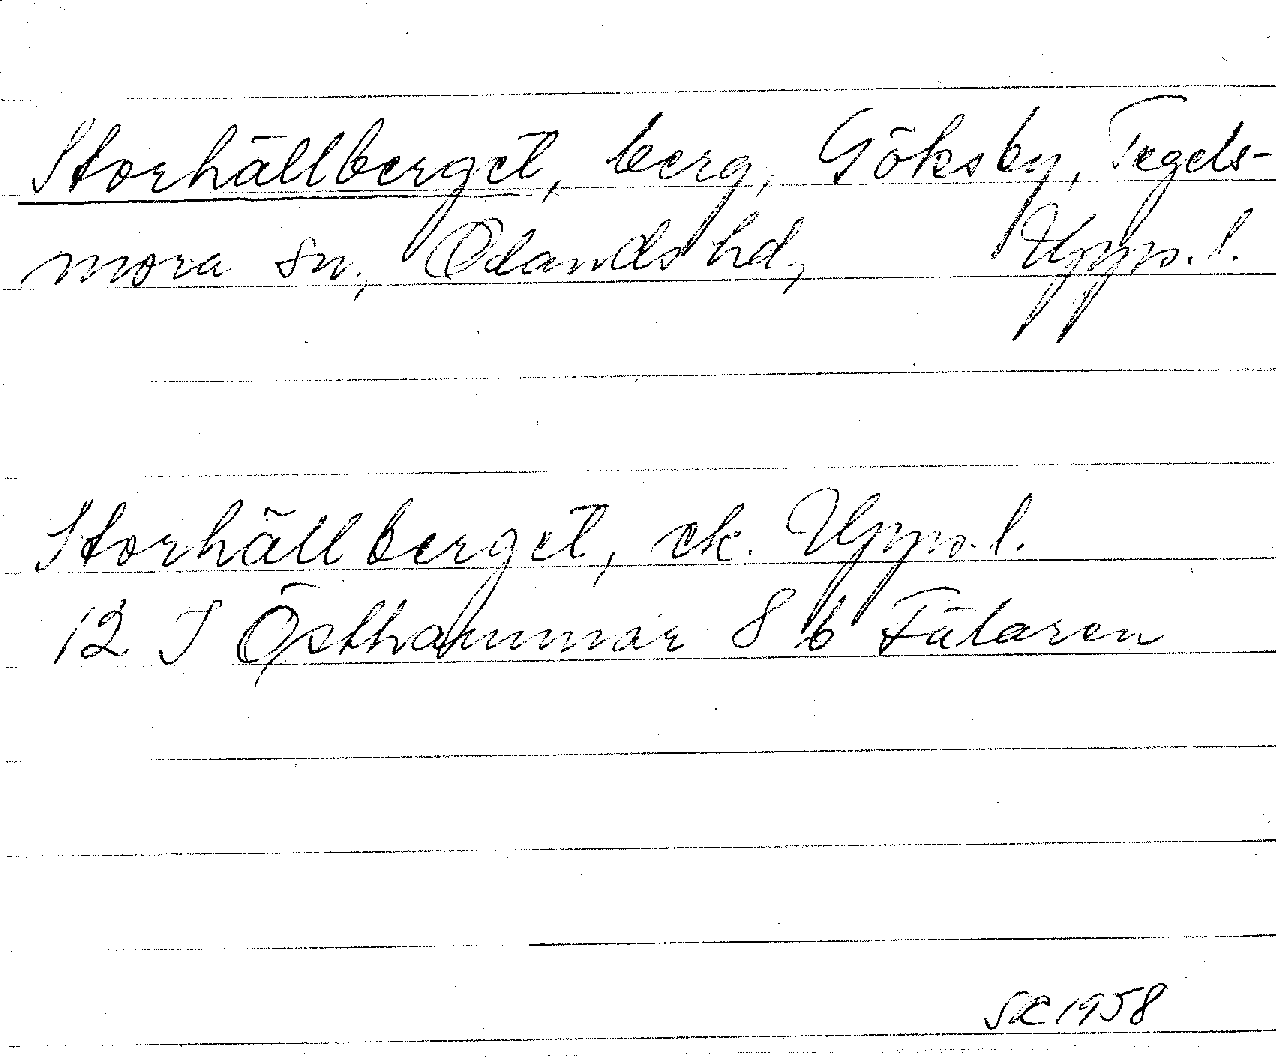 Storhällberget, berg, Göksby, Tegels-
mora sn, Olands hd, Uppl.
Storhällberget, ek. Uppl.
12 I Östhammar 8 b Fälaren
SK 1958